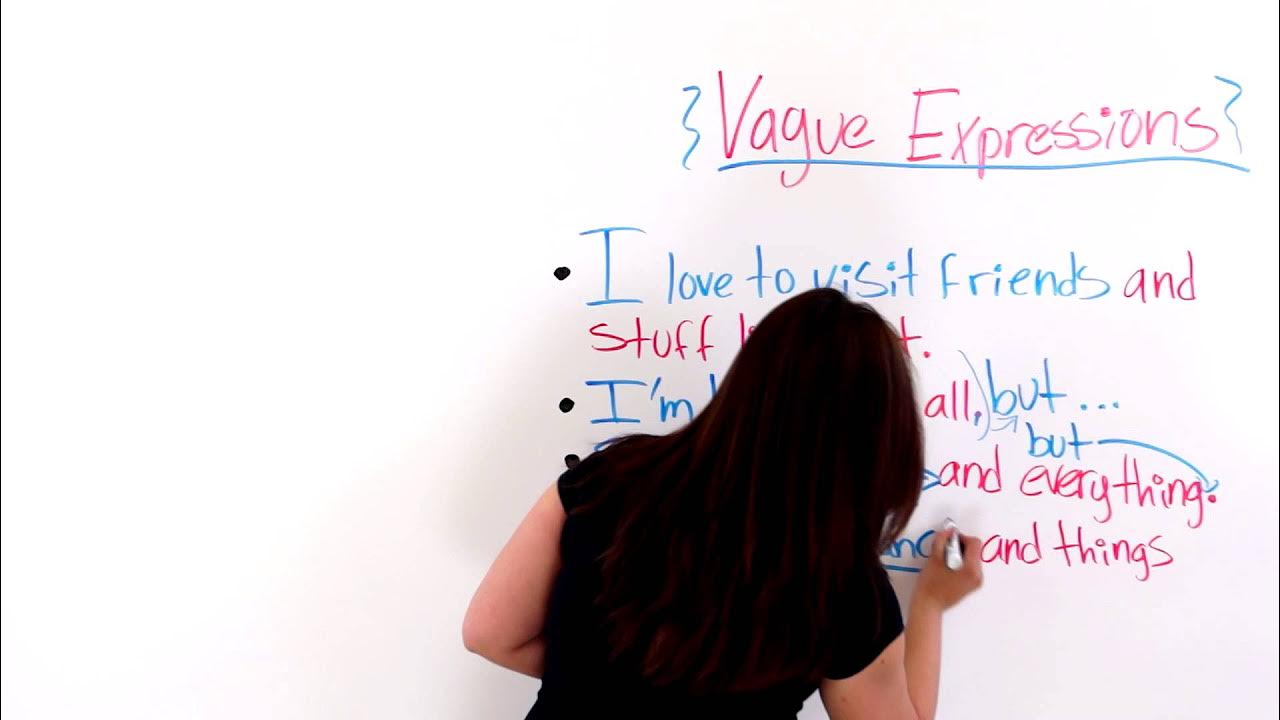 {Vague Expressions}
• I love to visit friends and
stuff
• I'm all, but ...
but
and everything.
and things